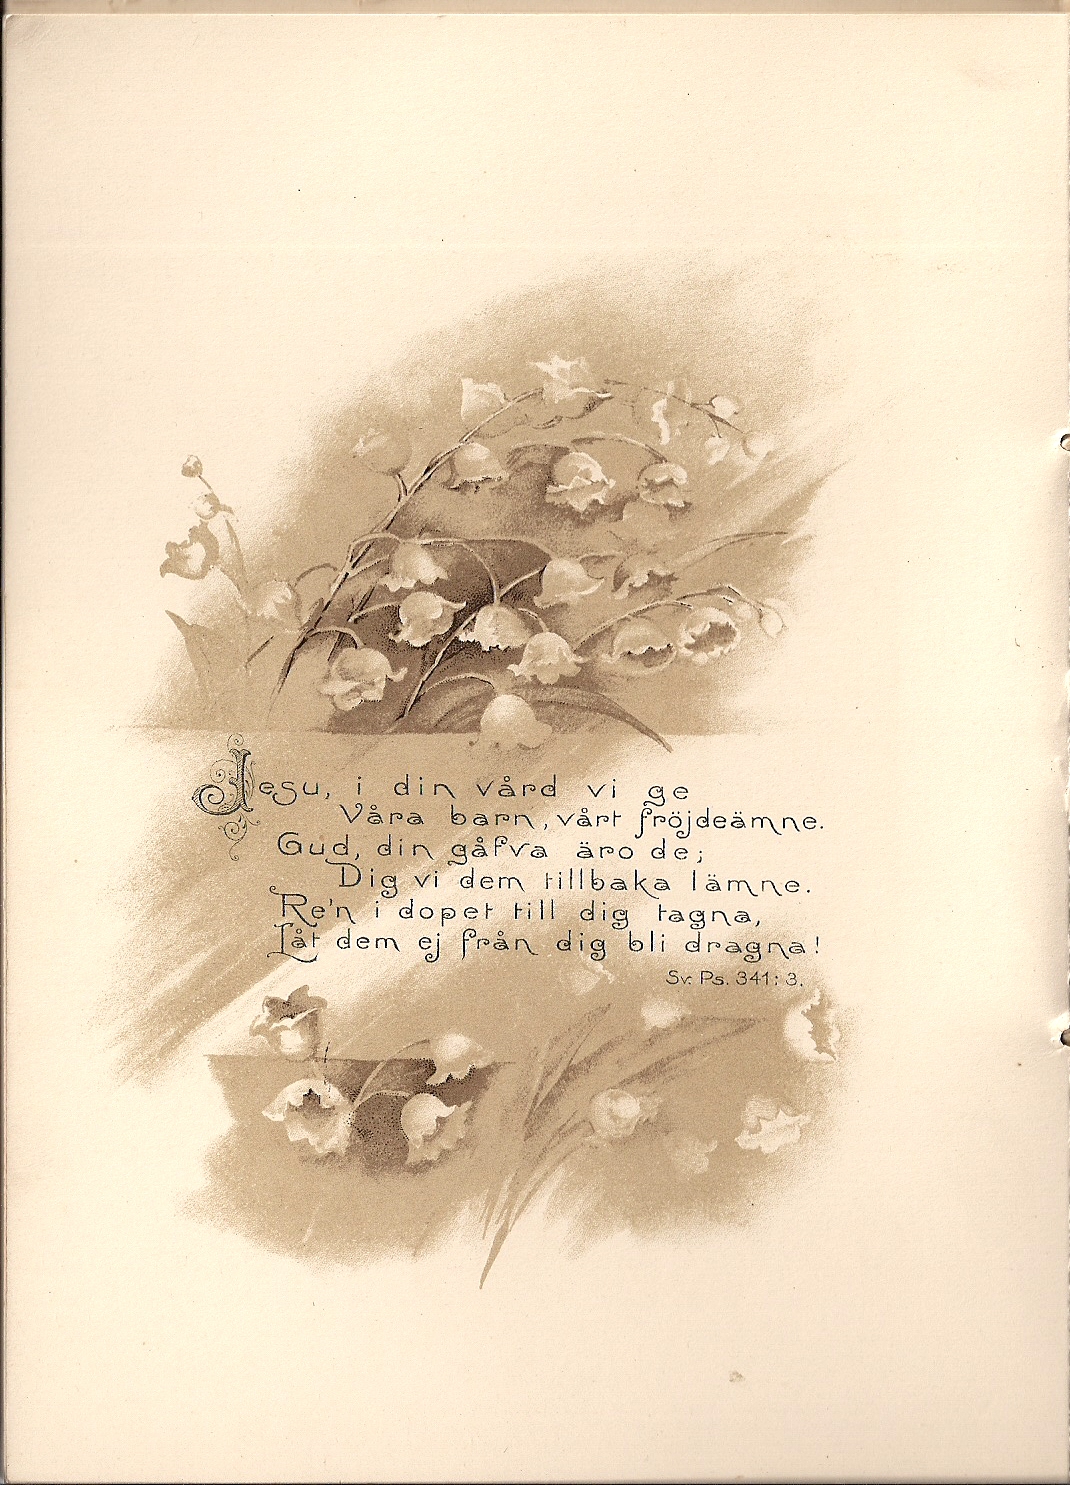 Jesu, i din vård vi ge
Våra barn, vårt fröjdeämne.
Gud, din gåfva äro de;
Dig vi dem tillbaka lämne.
Re'n i dopet till dig tagna,
Låt dem ej från dig bli dragna!
Sv. Ps. 341: 3.